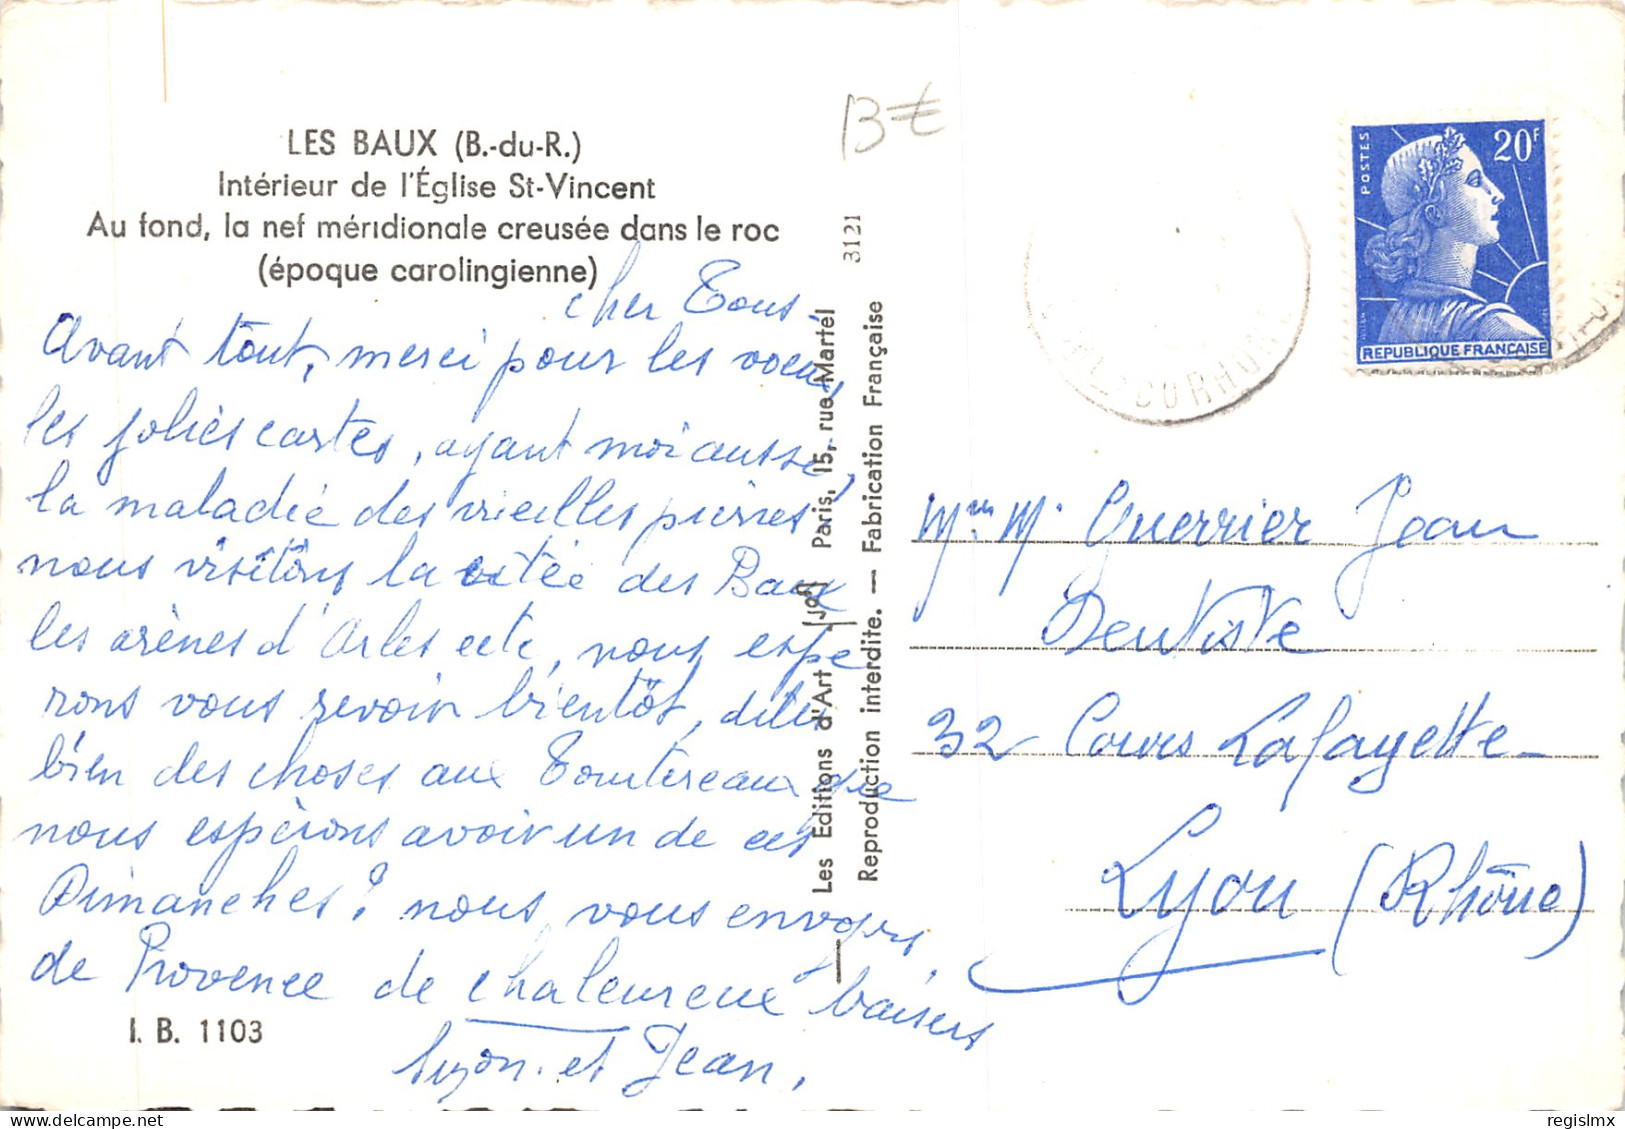 LES BAUX (B.-du-R.)
Intérieur de l'Église St-Vincent
Au fond, la nef méridionale creusée dans le roc
(époque carolingienne)
cher Tous-
Avant tout, merci pour les voeux,
les jolies cartes, ayant moi aussi,
la maladie des vieilles pierres
nous visitons la citée des Baux
les arènes d'Arles ect, nous espe
rons vous revoir bientôt, dites
bien des choses aux Tourtereaux que
nous espérons avoir un de ces
Dimanches? nous vous envoyons,
de Provence de chaleureux baisers
Suzon. et Jean,
I. B. 1103
3121
Les Editions d'Art Paris, 15, rue Martel
Reproduction interdite. — Fabrication Française
13 €
POSTES
20F
REPUBLIQUE FRANÇAISE
Mr. M. Guerrier Jean
Dentiste
32 Cours Lafayette-
Lyon (Rhône)
delcampe.net
regislmx